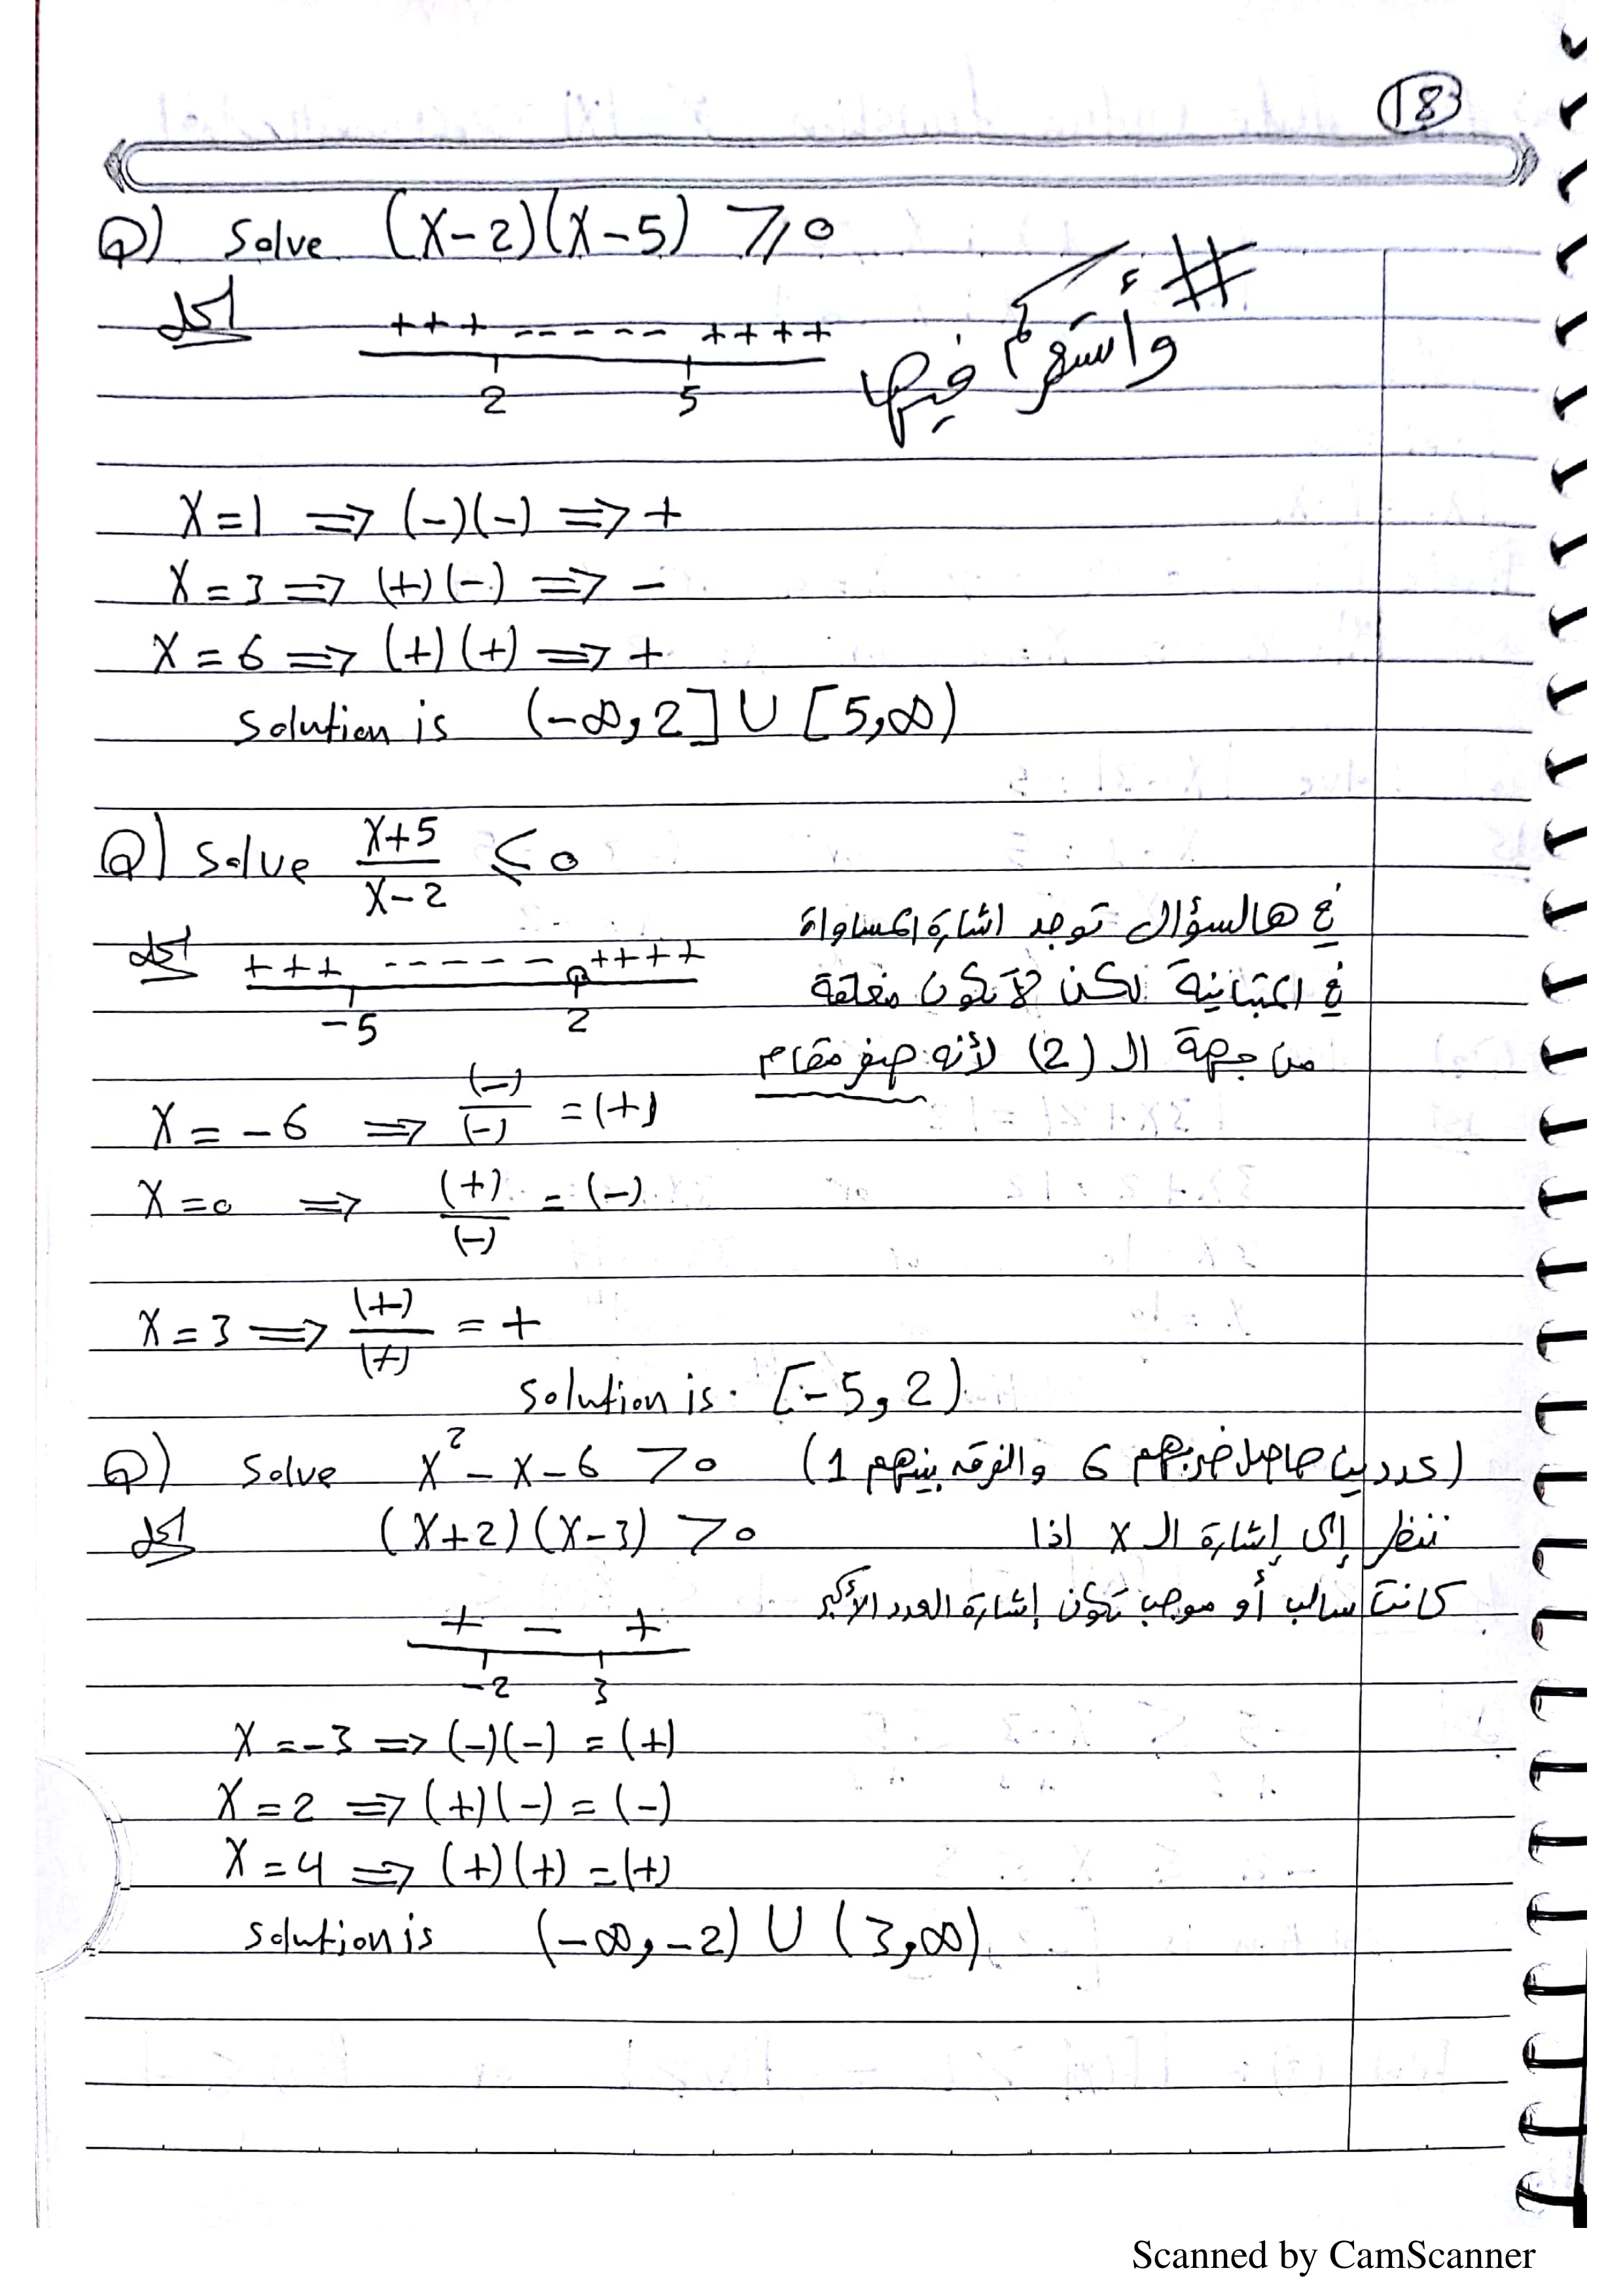 18
Q) Solve (x-2)(x-5) ≥ 0
الحل
+++ ----- ++++
2 5
# وأستعمركم فيها
x=1 ⇒ (-)(-) ⇒ +
x=3 ⇒ (+)(-) ⇒ -
x=6 ⇒ (+)(+) ⇒ +
solution is (-∞,2] ∪ [5,∞)
Q) Solve (x+5)/(x-2) ≤ 0
الحل
+++ ------ ++++
-5 2
في هالسؤال توجد اشارة المساواة
في المتباينة لكن لا تكون مغلقة
من جهة ال (2) لأنه صفر مقام
x=-6 ⇒ (-)/(-) = (+)
x=0 ⇒ (+)/(-) = (-)
x=3 ⇒ (+)/(+) = +
solution is. [-5,2)
Q) Solve x²-x-6 > 0 (عددين حاصل ضربهم 6 والفرق بينهم 1)
الحل (x+2)(x-3) > 0
ننظر إلى إشارة ال x اذا
كانت سالب أو موجب تكون إشارة العدد الأكبر
+ - +
-2 3
x=-3 ⇒ (-)(-) = (+)
x=2 ⇒ (+)(-) = (-)
x=4 ⇒ (+)(+) = (+)
solution is (-∞,-2) ∪ (3,∞)
Scanned by CamScanner